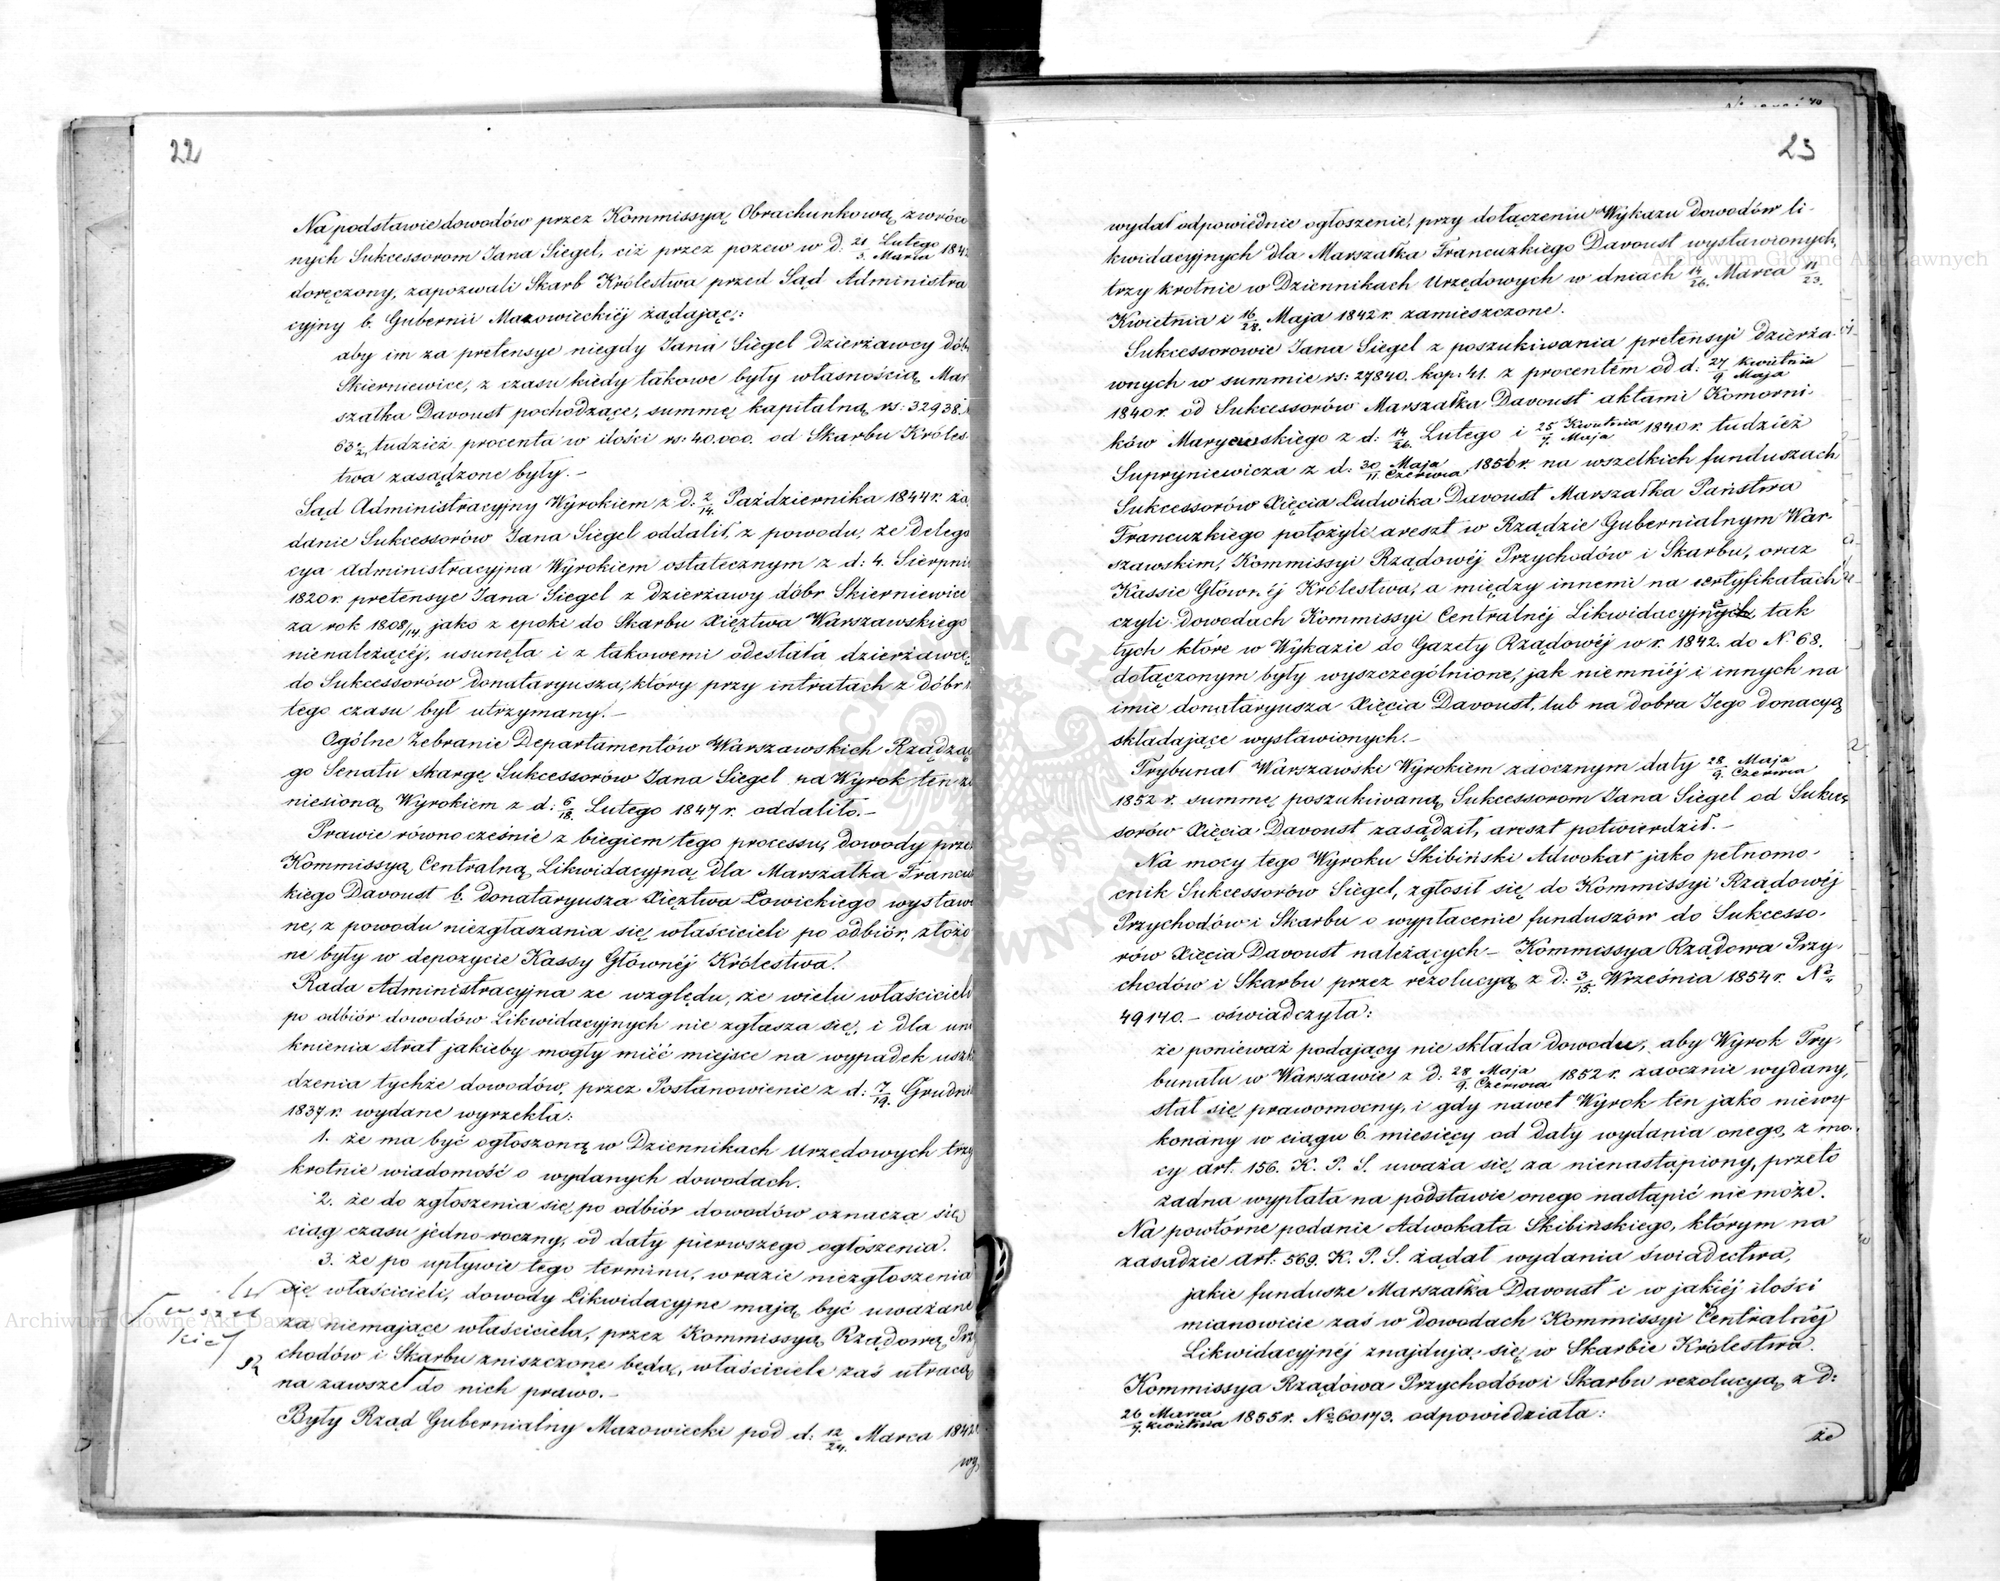 22
Na podstawie dowodów przez Kommissyą Obrachunkową zwróco
nych Sukcessorom Jana Siegel, ciż przez pozew w d: 21 Lutego / 5. Marca 1842
doręczony, zapozwali Skarb Królestwa przed Sąd Administra
cyjny b. Gubernii Mazowieckiéj żądając:
aby im za pretensye niegdy Jana Siegel dzierżawcy dóbr
Skierniewice, z czasu kiedy takowe były własnością Mar
szałka Davoust pochodzące, summę kapitalną rs: 32938.
63½, tudzież procenta w ilości rs: 40.000. od Skarbu Króles
twa zasądzone były.–
Sąd Administracyjny Wyrokiem z d: 2/14. Października 1844 r. żą
danie Sukcessorów Jana Siegel oddalił, z powodu, że Delega
cya Administracyjna Wyrokiem ostatecznym z d: 4. Sierpni
1820 r. pretensye Jana Siegel z dzierżawy dóbr Skierniewice
za rok 1808/14 jako z epoki do Skarbu Xięztwa Warszawskiego
nienależącéj, usunęła i z takowemi odesłała dzierżawcę
do Sukcessorów donataryusza, który przy intratach z dóbr
tego czasu był utrzymany.–
Ogólne Zebranie Departamentów Warszawskich Rządzą
go Senatu skargę Sukcessorów Jana Siegel na Wyrok ten za
niesioną Wyrokiem z d: 6/18. Lutego 1847 r. oddaliło.–
Prawie równocześnie z biegiem tego processu, dowody prze
Kommissyą Centralną Likwidacyjną dla Marszałka Francuz
kiego Davoust b. donataryusza Xięztwa Łowickiego wystaw
ne, z powodu niezgłaszania się właścicieli po odbiór, złożo
ne były w depozycie Kassy Głównéj Królestwa.
Rada Administracyjna ze względu, że wielu właścicieli
po odbiór dowodów Likwidacyjnych nie zgłasza się, i dla uni
knienia strat jakieby mogły mieć miejsce na wypadek uszko
dzenia tychże dowodów, przez Postanowienie z d: 7/19. Grudnia
1837 r. wydane wyrzekła:
1. że ma być ogłoszoną w Dziennikach Urzędowych trzy
krotnie wiadomość o wydanych dowodach.
2. że do zgłoszenia się po odbiór dowodów oznacza się
ciąg czasu jedno-roczny, od daty pierwszego ogłoszenia.
3. że po upływie tego terminu, w razie niezgłoszenia
się właścicieli, dowody Likwidacyjne mają być uważane
za niemające właściciela, przez Kommissyą Rządową Prz
chodów i Skarbu zniszczone będą, właściciele zaś utracą
na zawsze do nich prawo.–
Były Rząd Gubernialny Mazowiecki pod d: 12/24. Marca 1842
wy,
wszel
kie
23
wydał odpowiednie ogłoszenie, przy dołączeniu Wykazu dowodów li-
kwidacyjnych dla Marszałka Francuzkiego Davoust wystawionych,
trzykrotnie w Dziennikach Urzędowych w dniach 14/26. Marca 11/23.
Kwietnia i 16/28. Maja 1842 r. zamieszczone.
Sukcessorowie Jana Siegel z poszukiwania pretensyi dzierża-
wnych w summie rs: 27840. kop: 41. z procentem od d: 27 Kwietnia / 9 Maja
1840 r. od Sukcessorów Marszałka Davoust aktami Komorni-
ków z d: 14/26. Lutego i 25 Kwietnia / 7. Maja 1840 r. tudzież
Supryniewicza z d: 30 Maja / 11 Czerwca 1850 r. na wszelkich funduszach
Sukcessorów Xięcia Ludwika Davoust Marszałka Państwa
Francuzkiego położyli areszt w Rządzie Gubernialnym War-
szawskim, Kommissyi Rządowéj Przychodów i Skarbu, oraz
Kassie Głównéj Królestwa, a między innemi na certyfikatach
czyli dowodach Kommissyi Centralnéj Likwidacyjnéj tak
tych które w Wykazie do Gazety Rządowéj w r. 1842. do N. 68.
dołączonym były wyszczególnione, jak niemniéj i innych na
imie donataryusza Xięcia Davoust, lub na dobra Jego donacyą
składające wystawionych.–
Trybunał Warszawski Wyrokiem zaocznym daty 28 Maja / 9. Czerwca
1852 r. summę poszukiwaną Sukcessorom Jana Siegel od Sukces
sorów Xięcia Davoust zasądził, areszt potwierdził.–
Na mocy tego Wyroku Skibiński Adwokat jako pełnomo-
cnik Sukcessorów Siegel, zgłosił się do Kommissyi Rządowéj
Przychodów i Skarbu o wypłacenie funduszów do Sukcesso-
rów Xięcia Davoust należących – Kommissya Rządowa Przy-
chodów i Skarbu przez rezolucyą z d: 3/15. Września 1854 r. No
49140.– oświadczyła:
że ponieważ podający nie składa dowodu, aby Wyrok Try-
bunału w Warszawie z d: 28 Maja / 9. Czerwca 1852 r. zaocznie wydany,
stał się prawomocny, i gdy nawet Wyrok ten jako niewy
konany w ciągu 6. miesięcy od daty wydania onego, z mo-
cy art: 156. K. P. S. uważa się za nienastąpiony, przeto
żadna wypłata na podstawie onego nastąpić nie może.
Na powtórne podanie Adwokata Skibińskiego, którym na
zasadzie Art: 569. K. P. S. żądał wydania świadectwa,
jakie fundusze Marszałka Davoust i w jakiéj ilości
mianowicie zaś w dowodach Kommissyi Centralnéj
Likwidacyjnéj znajdują się w Skarbie Królestwa.
Kommissya Rządowa Przychodów i Skarbu rezolucyą z d:
26 Marca / 7. Kwietnia 1855 r. No 60173. odpowiedziała:
że
Archiwum Główne Akt Dawnych
Archiwum Główne Akt Dawnych